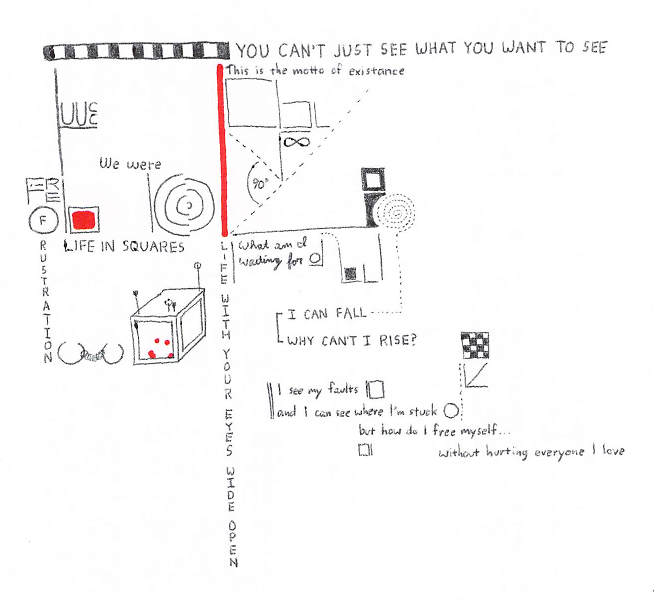 YOU CAN'T JUST SEE WHAT YOU WANT TO SEE
This is the motto of existance
We were
90°
∞
FRUSTRATION
LIFE IN SQUARES
LIFE WITH YOUR EYES WIDE OPEN
What am I
waiting for
I CAN FALL
WHY CAN'T I RISE?
I see my faults
and I can see where I'm stuck
but how do I free myself...
without hurting everyone I love